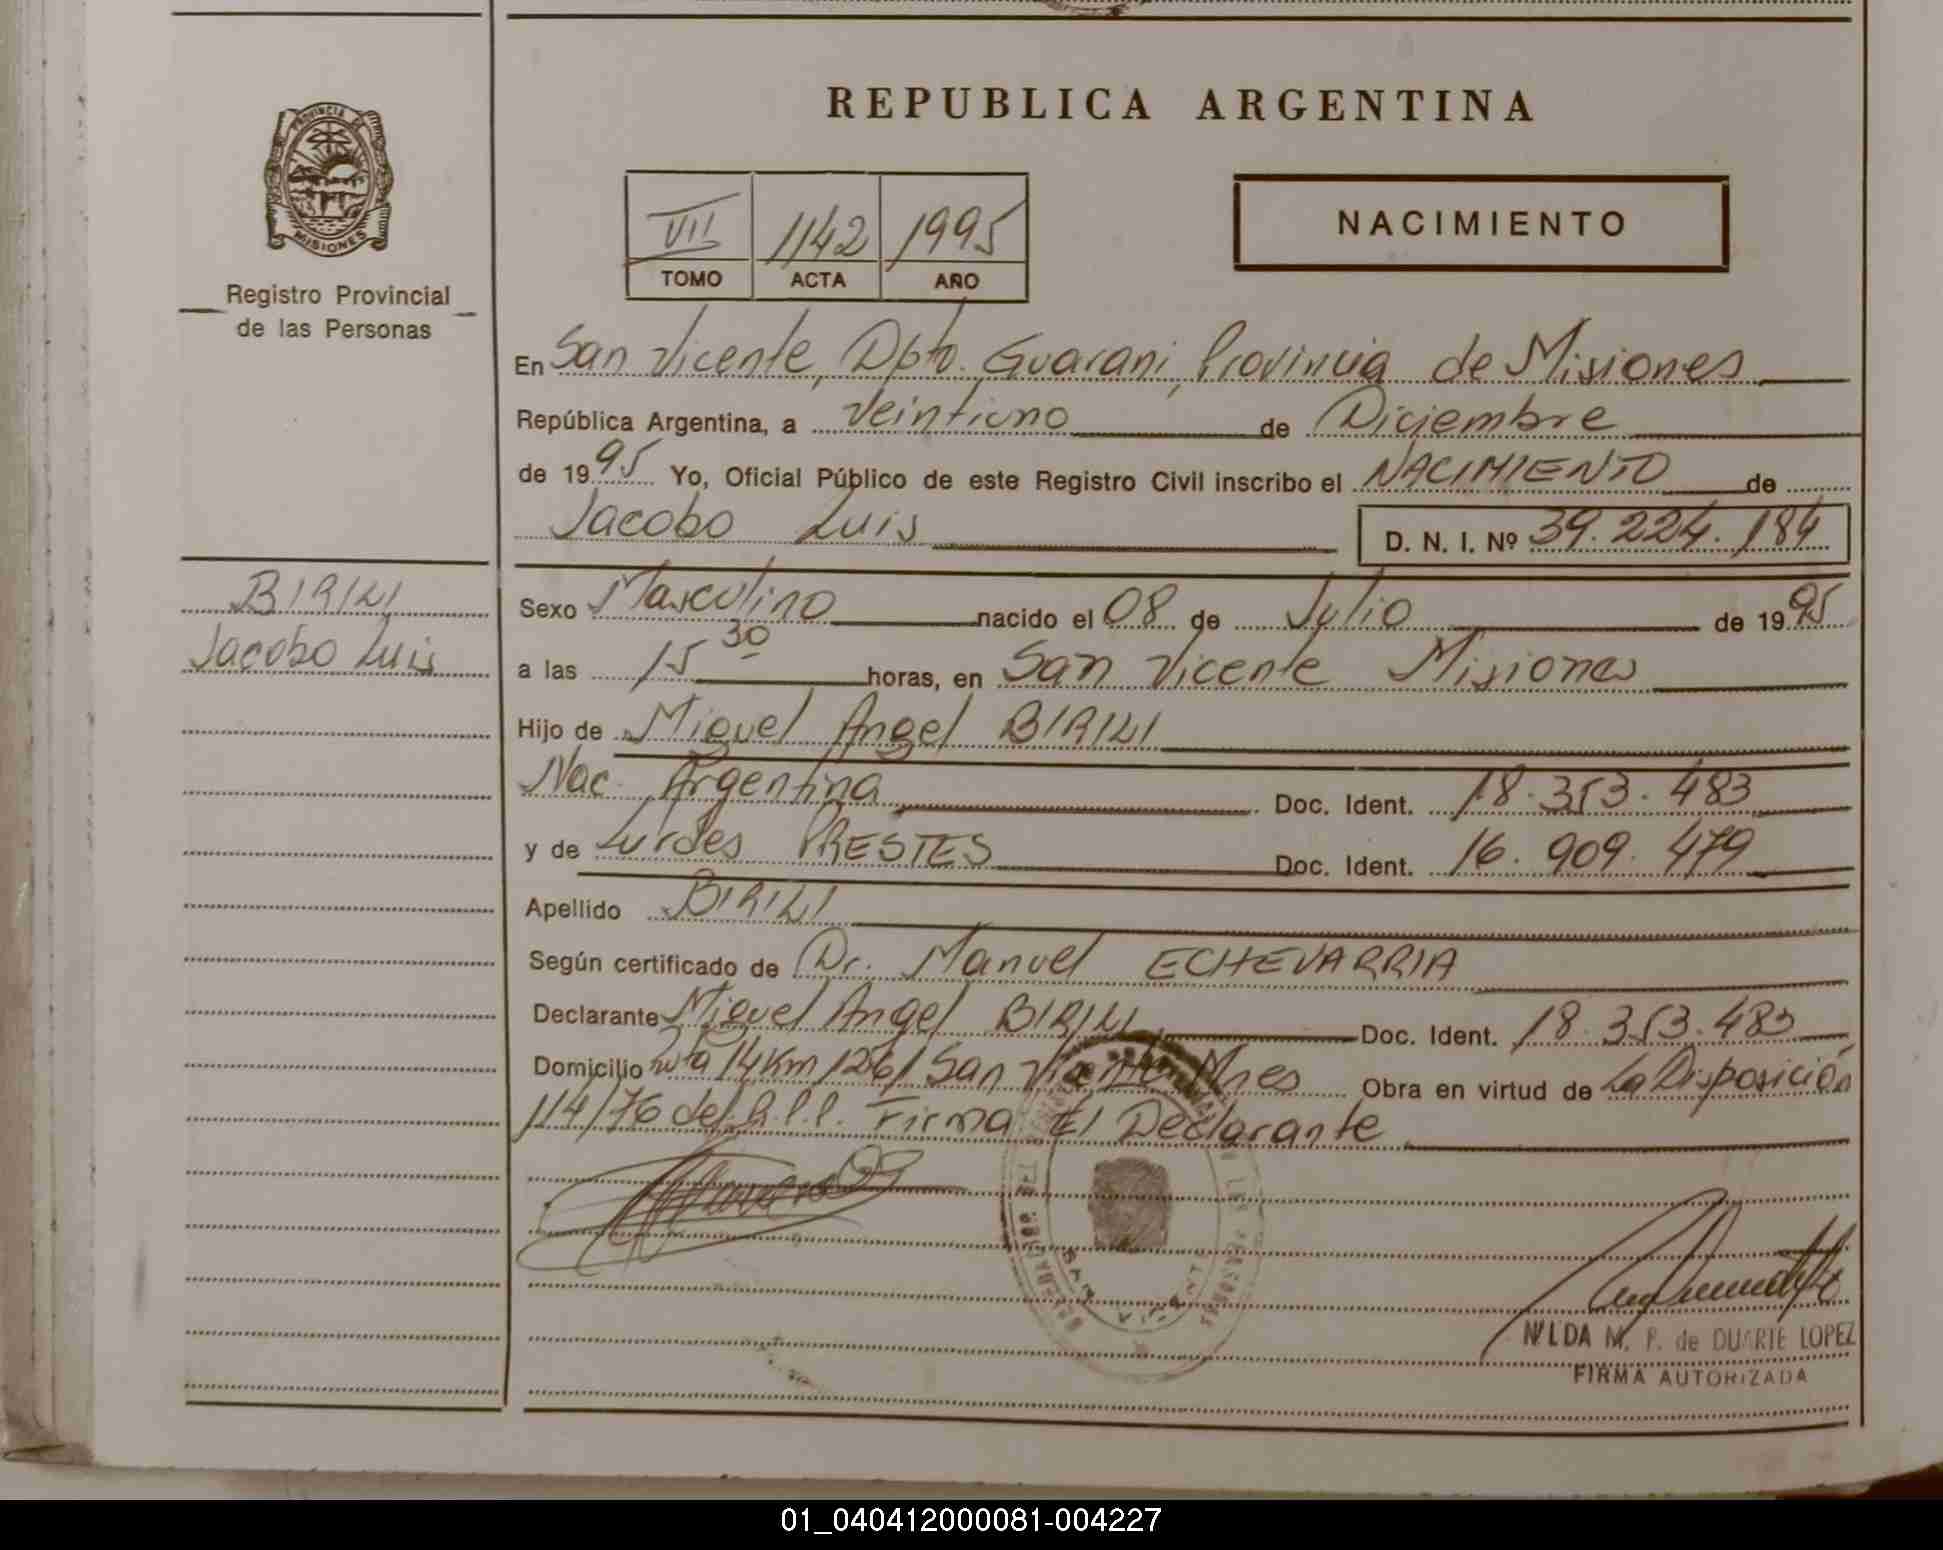 REPUBLICA ARGENTINA
PROVINCIA DE
MISIONES
Registro Provincial
de las Personas
VII 1142 1995
TOMO ACTA AÑO
NACIMIENTO
En San Vicente, Dpto. Guarani, Provincia de Misiones
República Argentina, a Veintiuno de Diciembre
de 1995 Yo, Oficial Público de este Registro Civil inscribo el NACIMIENTO de
Jacobo Luis D. N. I. Nº 39.224.184
BIRILI
Jacobo Luis
Sexo Masculino nacido el 08 de Julio de 1995
a las 15 30 horas, en San Vicente Misiones
Hijo de Miguel Angel BIRILI
Nac. Argentina Doc. Ident. 18.353.483
y de Lurdes PRESTES Doc. Ident. 16.909.479
Apellido BIRILI
Según certificado de Dr. Manuel ECHEVARRIA
Declarante Miguel Angel BIRILI Doc. Ident. 18.353.483
Domicilio Ruta 14 Km 1261 San Vicente Mnes Obra en virtud de La Disposición
114/76 del Firma El Declarante
NILDA M. P. de DUARTE LOPEZ
FIRMA AUTORIZADA
01_040412000081-004227